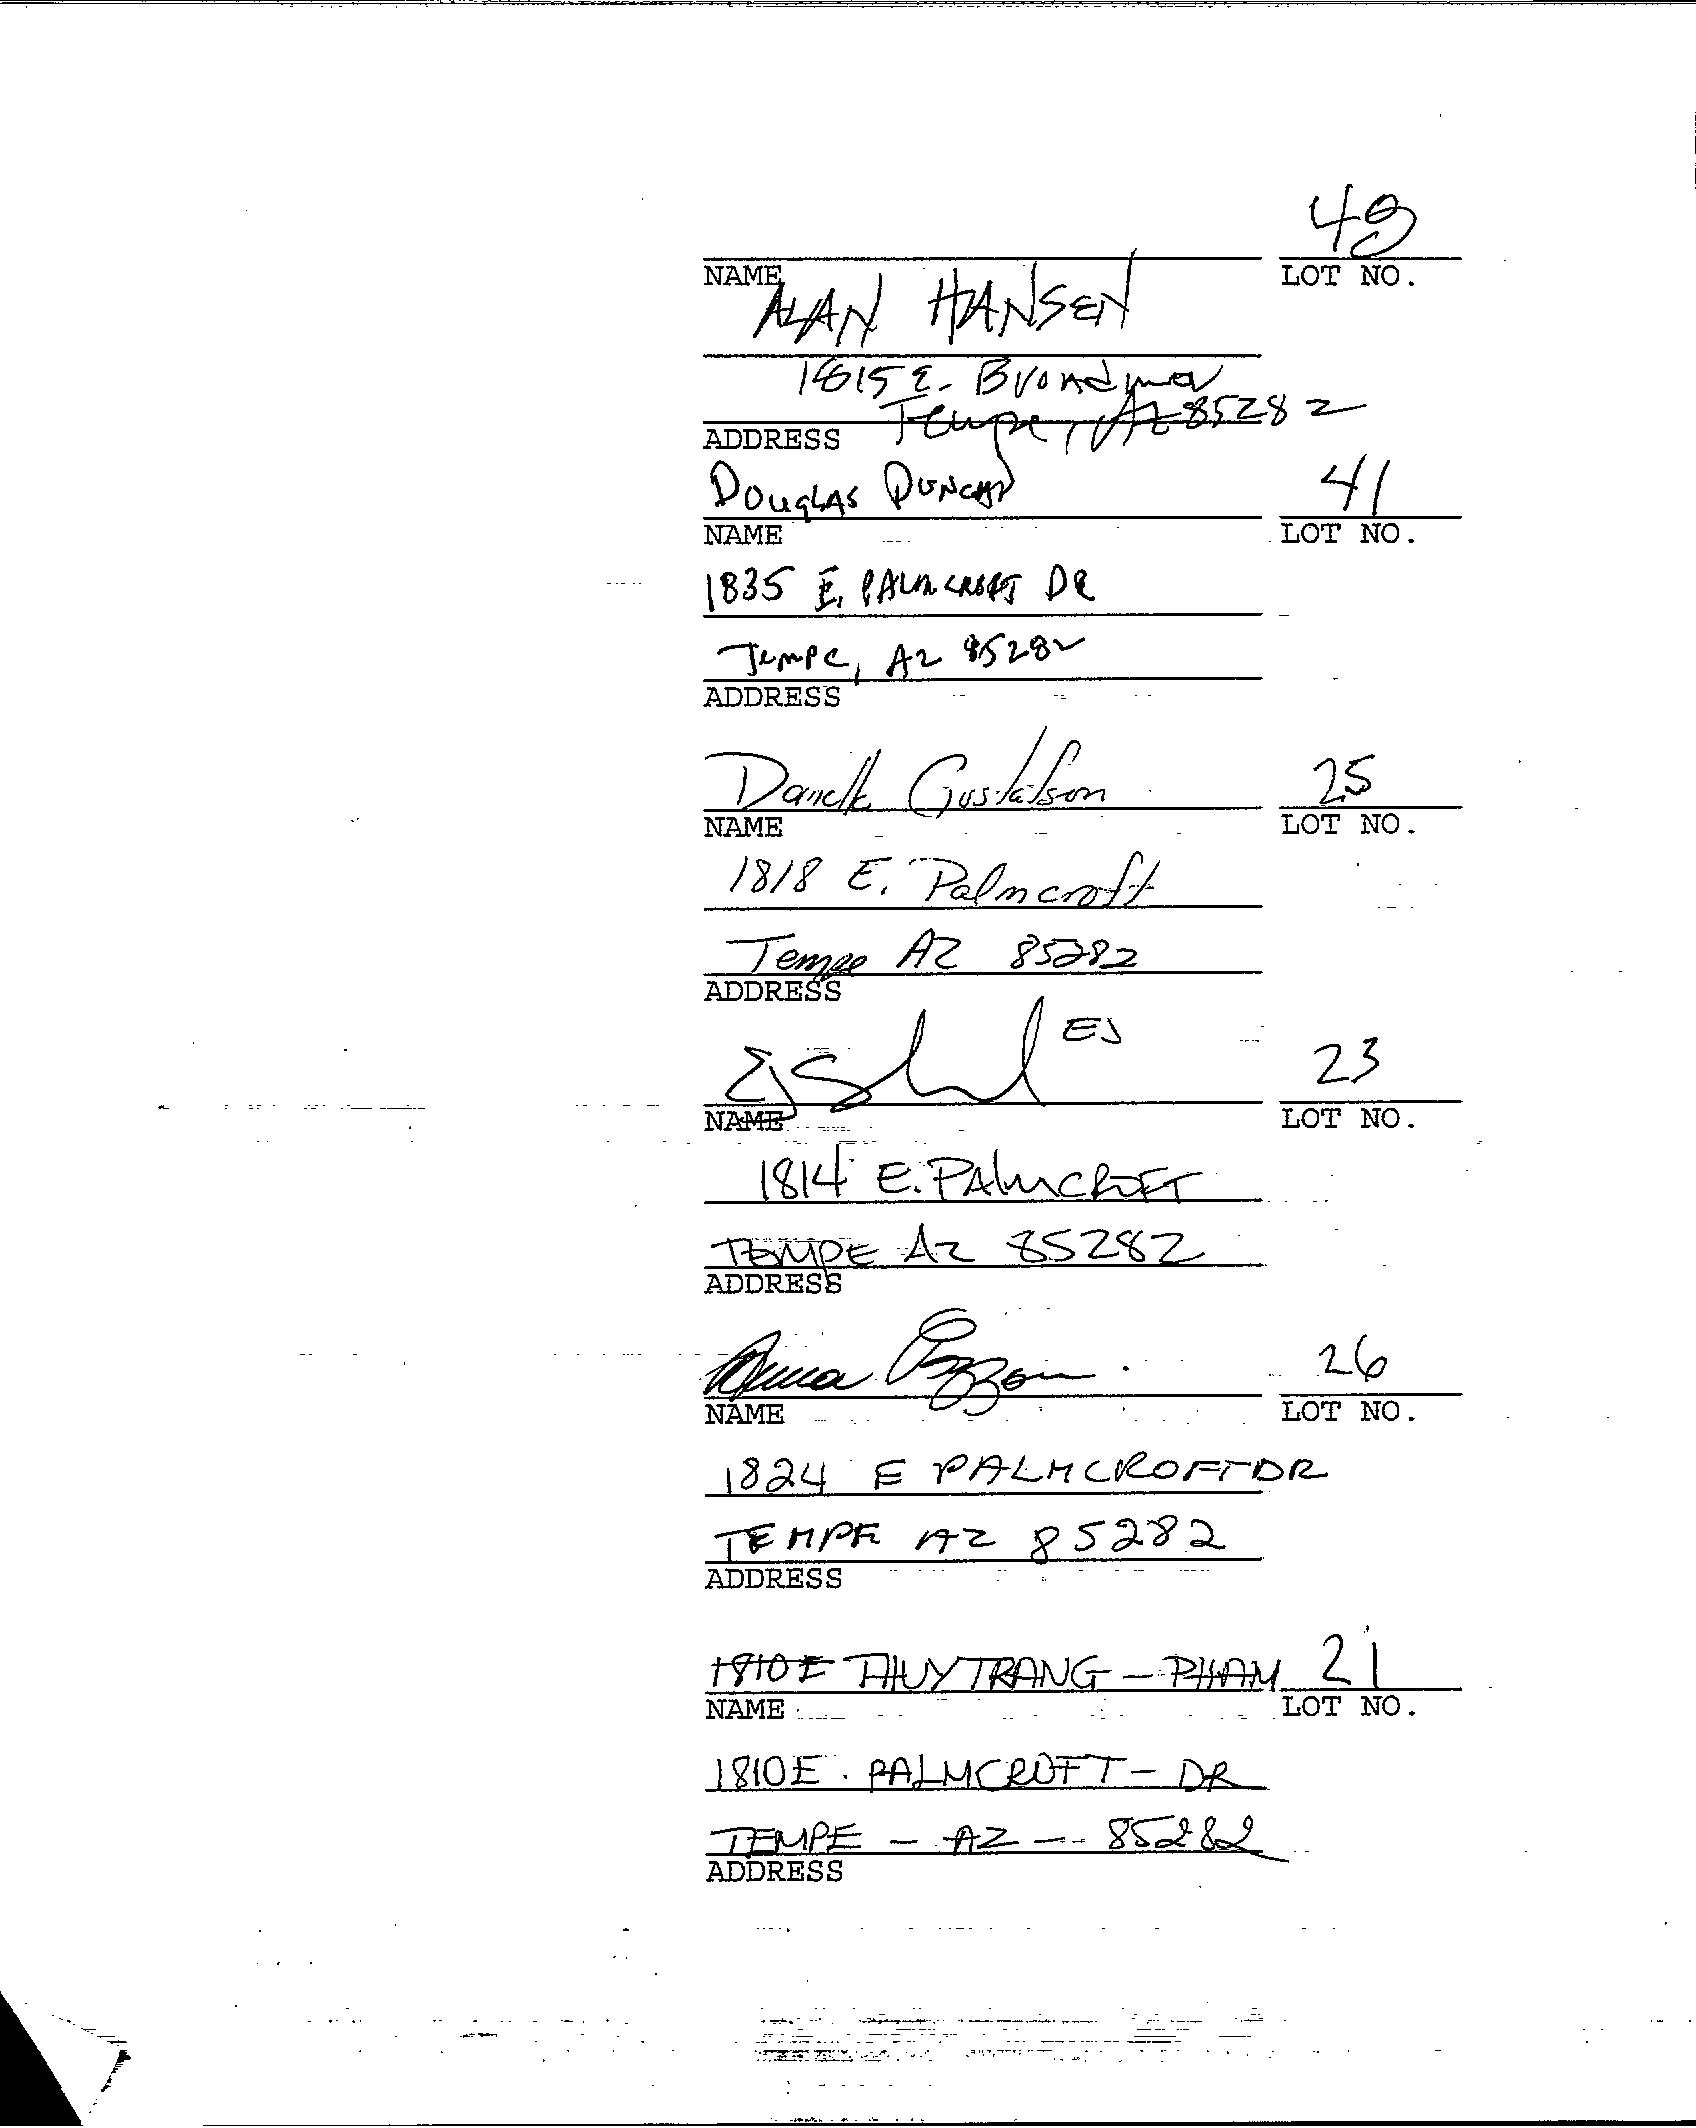 NAME LOT NO.
ALAN HANSEN
1815 E.
Tempe, Az 85282
ADDRESS
DOUGLAS DUNCAN 41
NAME LOT NO.
1835 E. PALMCROFT DR
Tempe, AZ 85282
ADDRESS
Danelle Gustafson 25
NAME LOT NO.
1818 E. Palmcroft
Tempe AZ 85282
ADDRESS
EJ 23
NAME LOT NO.
1814 E. PALMCROFT
TEMPE AZ 85282
ADDRESS
26
NAME LOT NO.
1824 E PALMCROFT DR
TEMPE AZ 85282
ADDRESS
1810E THUYTRANG - PHAM 21
NAME LOT NO.
1810 E. PALMCROFT - DR
TEMPE - AZ - 85282
ADDRESS